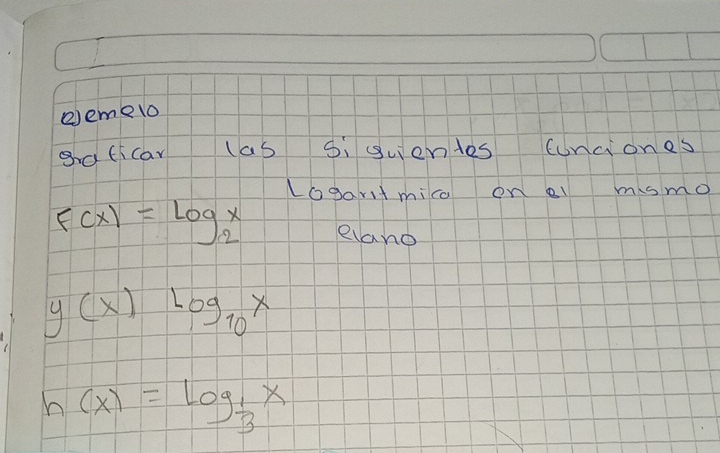 ejemplo
graficar las siguientes funciones
Logaritmica en el mismo
f(x) = Log₂ x
plano
y(x) Log₁₀ x
h(x) = Log₁/₃ x